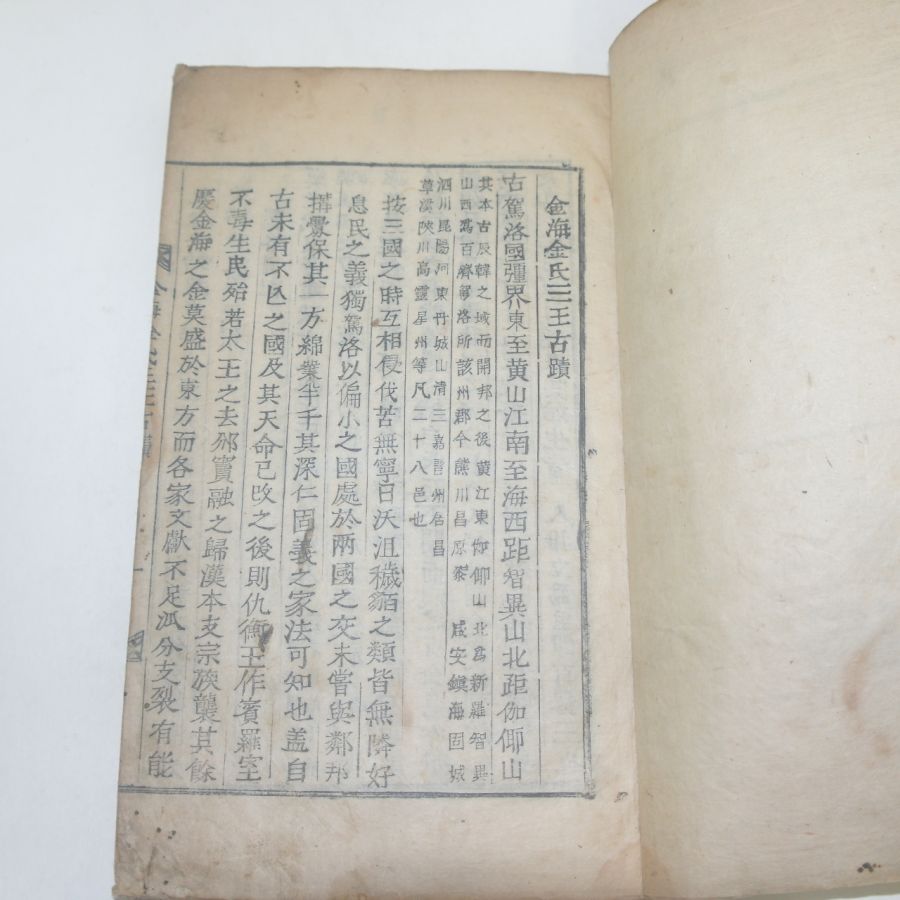 金海金氏三王古蹟
古駕洛國彊界東至黄山江南至海西距智異山北距伽倻山
其本古辰韓之域而開邦之後黄江東伽倻山北爲新羅智異
山西爲百濟駕洛所該州郡今熊川昌原泰咸安鎭海固城
泗川昆陽河東丹城山清三嘉晋州居昌
草溪陜川高靈星州等凡二十八邑也
按三國之時互相侵伐苦無寧日沃沮穢貊之類皆無隣好
息民之義獨駕洛以偏小之國處於兩國之交未嘗與鄰邦
搆釁保其一方綿業半千其深仁固義之家法可知也盖自
古未有不亾之國及其天命已改之後則仇衡王作賓羅室
不毒生民殆若太王之去邠竇融之歸漢本支宗族襲其餘
慶金海之金莫盛於東方而各家文獻不足派分支裂有能
金海金氏三王古蹟 一